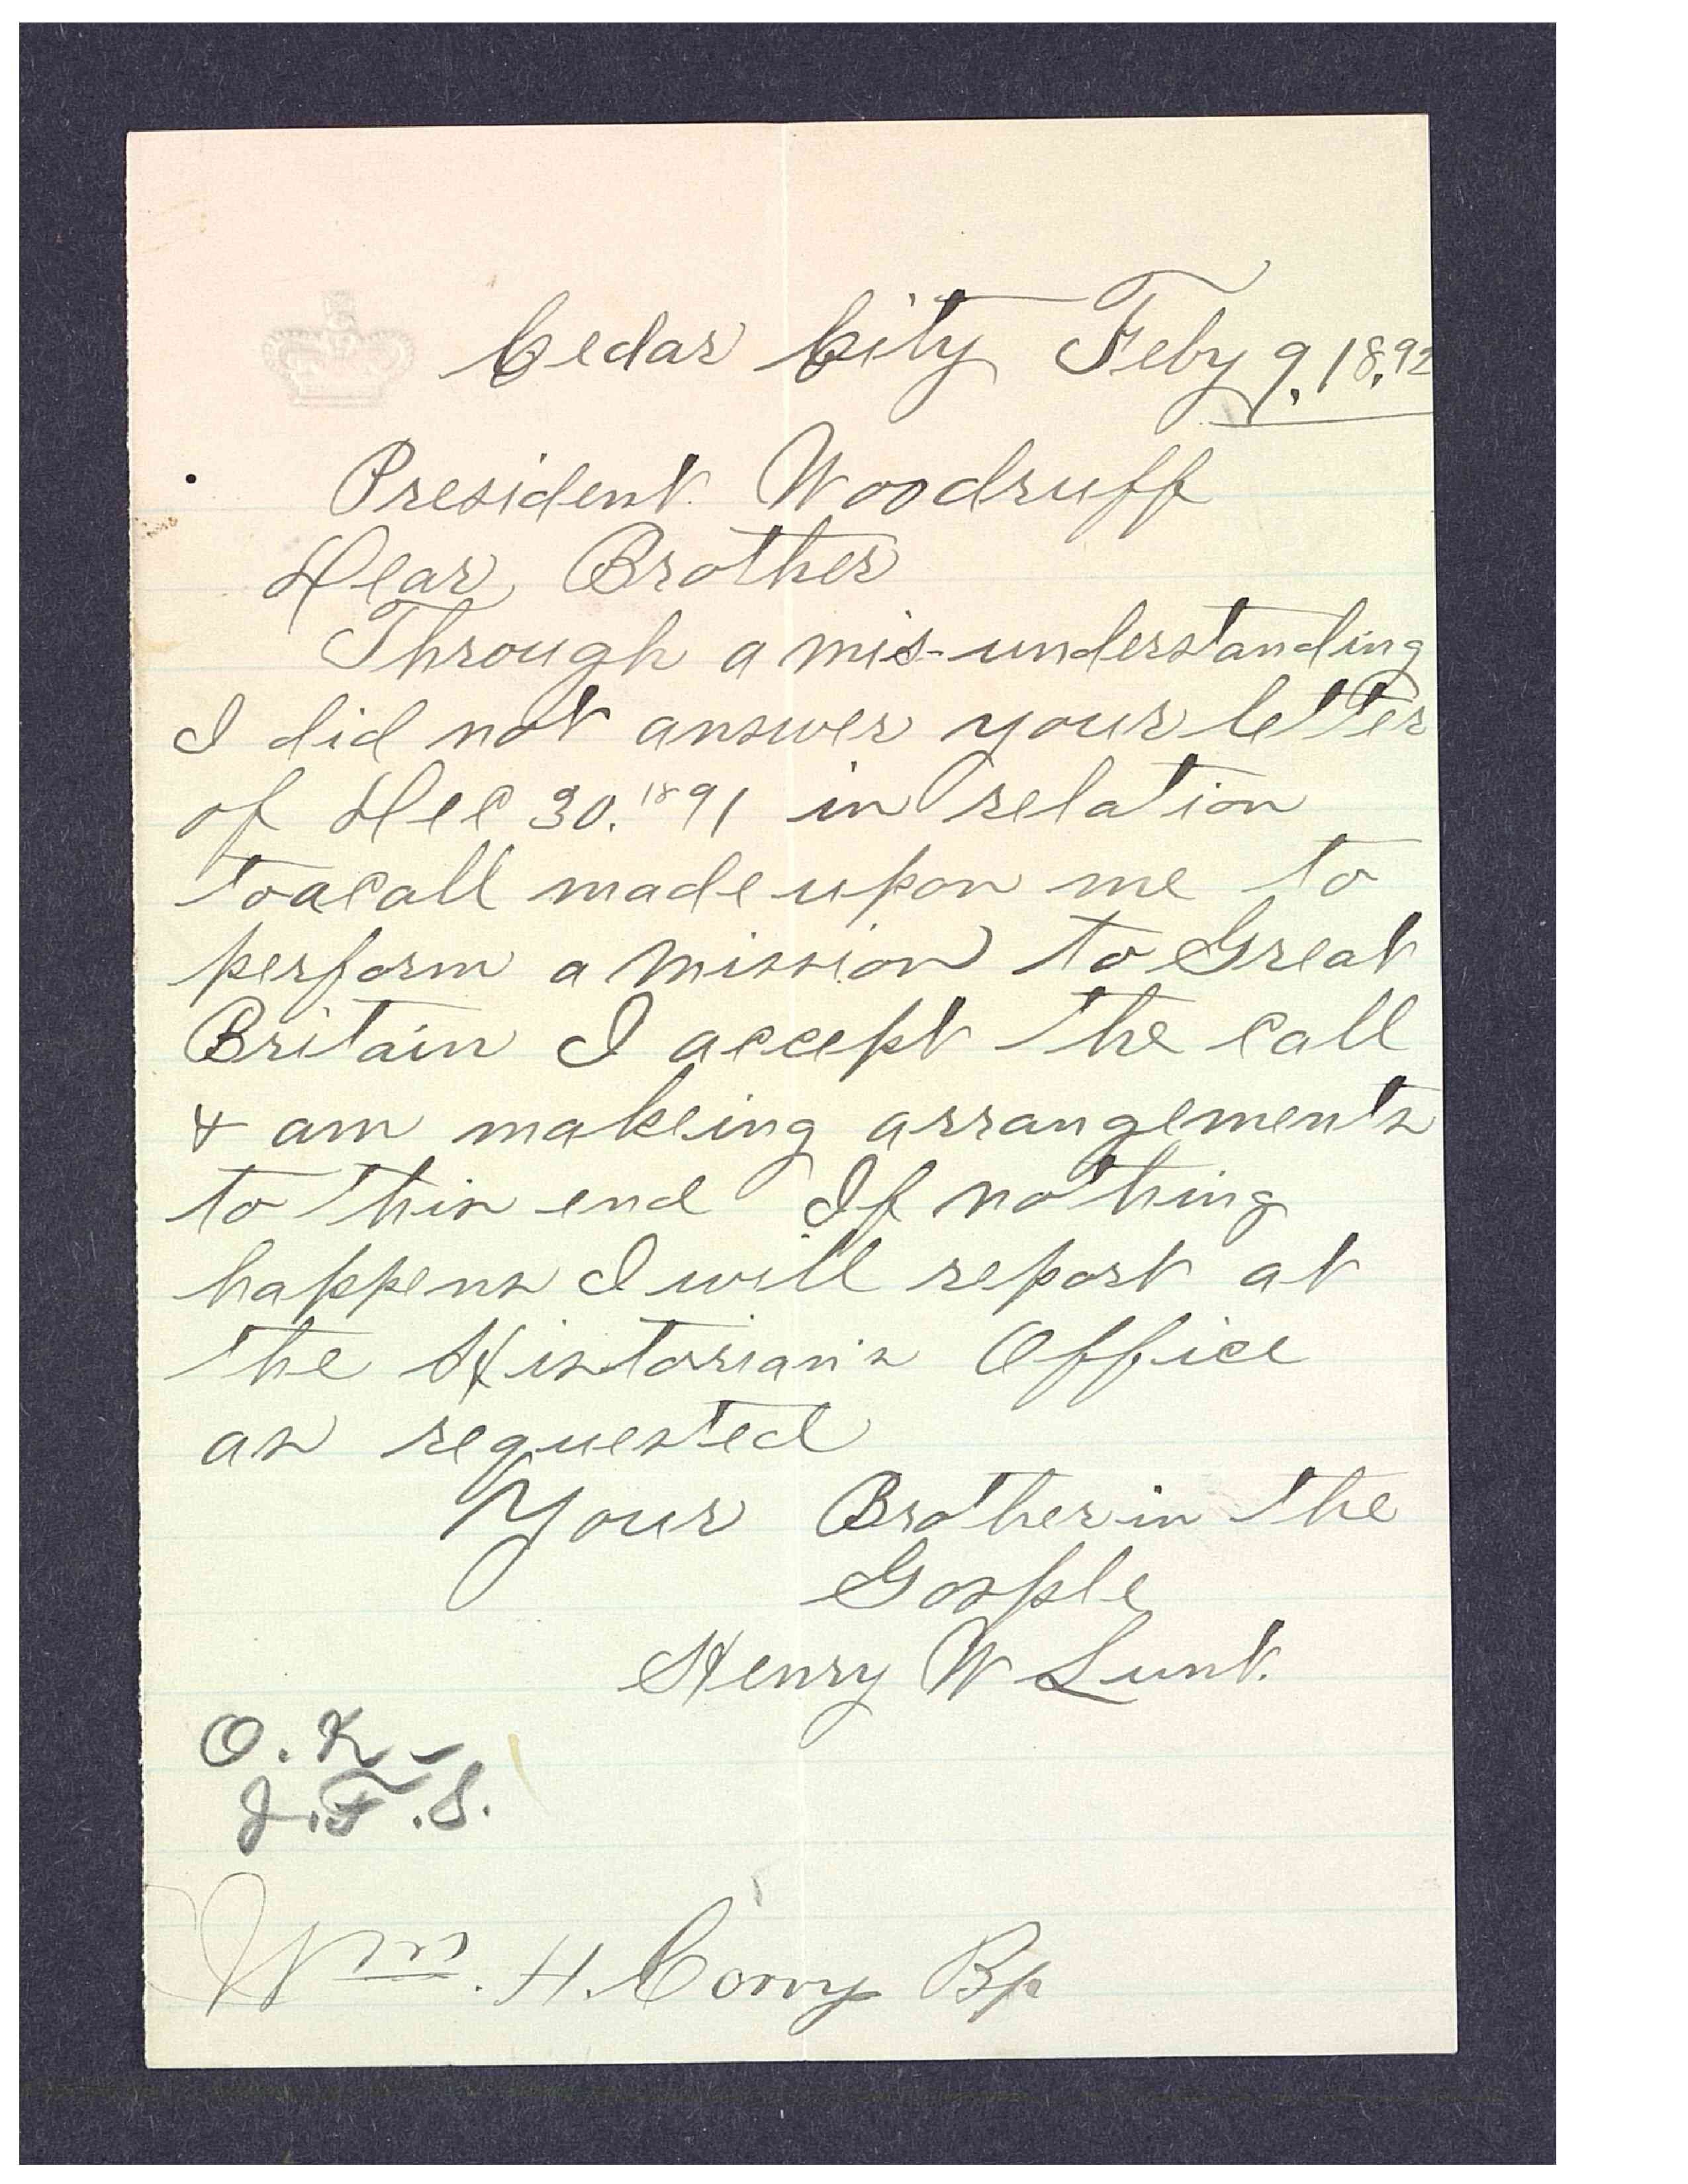 Cedar City Feby 9, 1892
President Woodruff
Dear Brother
Through a mis-understanding
I did not answer your letter
of Dec 30. 1891 in relation
to a call made upon me to
perform a mission to Great
Britain I accept the call
& am makeing arrangements
to this end If nothing
happens I will report at
the Historian's Office
as requested
Your Brother in the
Gosple
Henry W Lunt.
O.K-
J.F.S.
Wm. H. Corry Bp